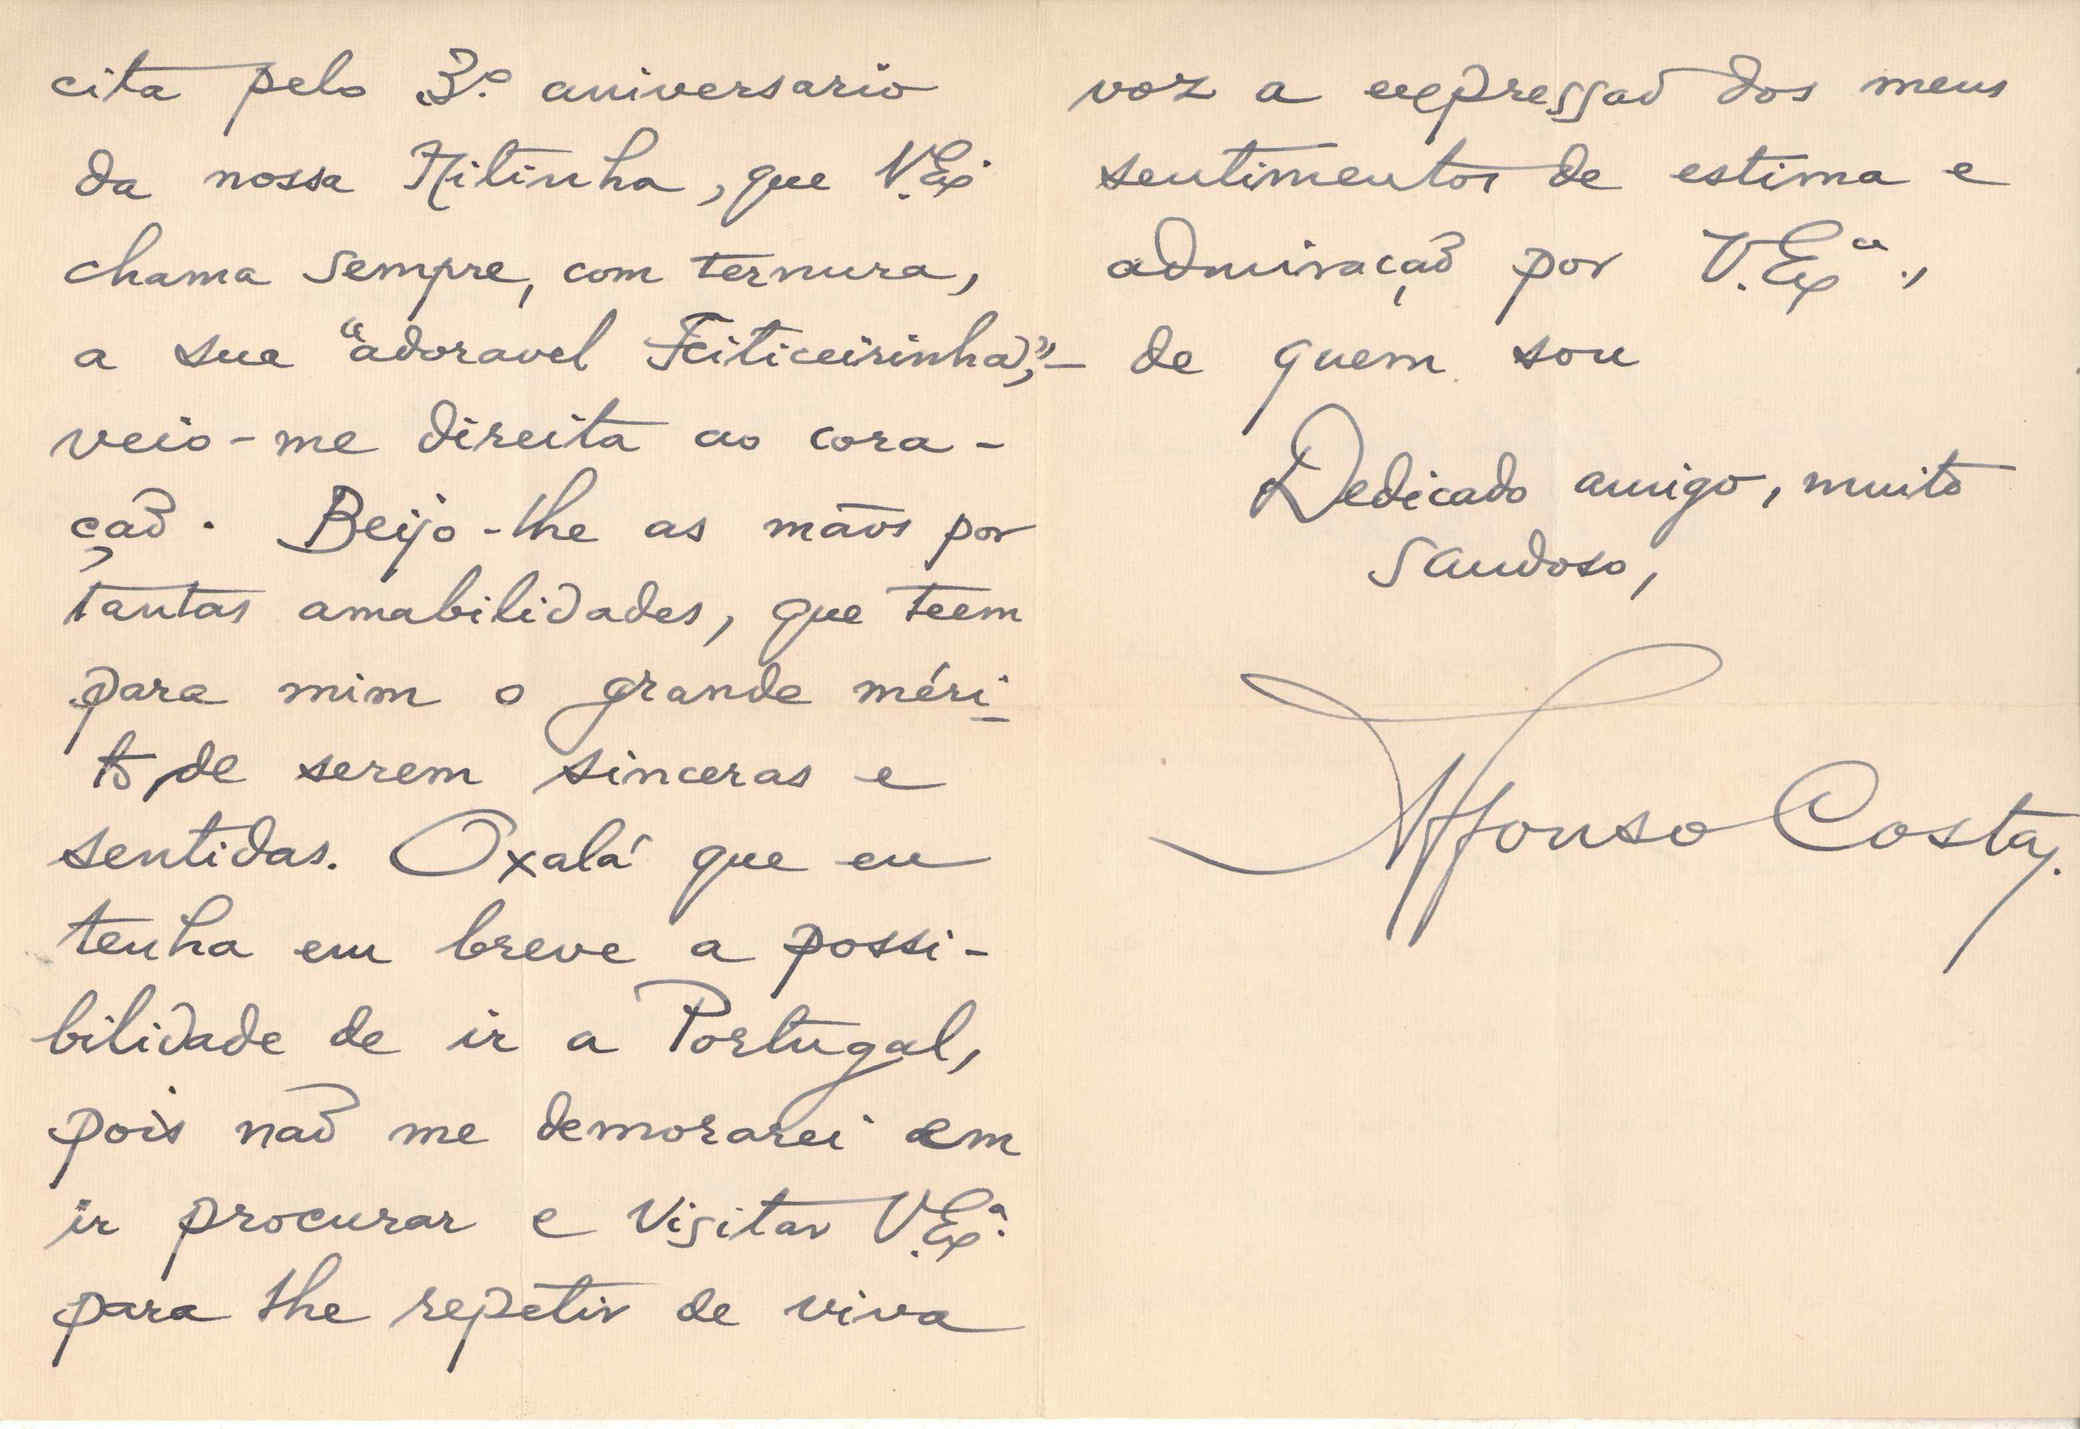 cita pelo 3º aniversario
da nossa Titinha, que V. Exª
chama sempre, com ternura,
a sua "adoravel Feiticeirinha", –
veio-me direita ao cora-
ção. Beijo-lhe as mãos por
tantas amabilidades, que teem
para mim o grande méri-
to, de serem sinceras e
sentidas. Oxalá que eu
tenha em breve a possi-
bilidade de ir a Portugal,
pois não me demorarei em
ir procurar e visitar V. Exª.
para lhe repetir de viva
voz a expressão dos meus
sentimentos de estima e
admiração por V. Exª.,
de quem sou
Dedicado amigo, muito
saudoso,
Affonso Costa.